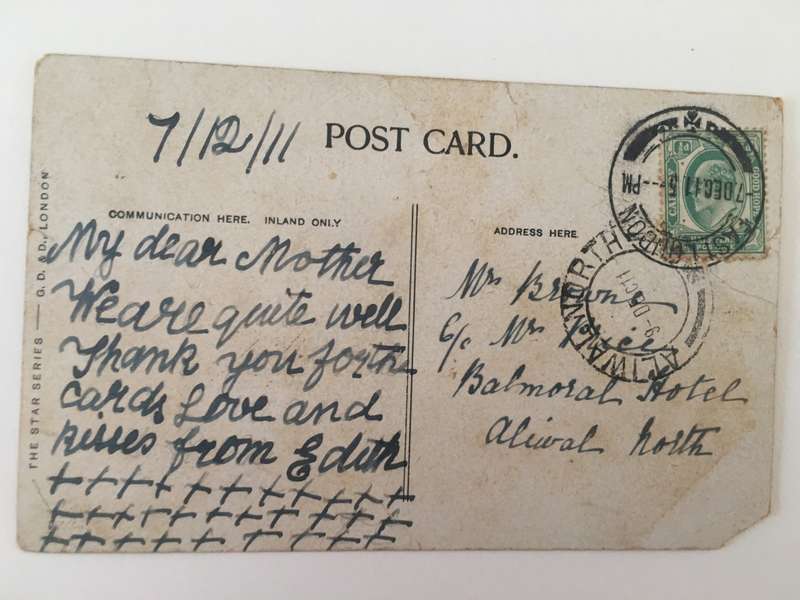 7/12/11
POST CARD.
COMMUNICATION HERE. INLAND ONLY
My dear Mother
We are quite well
Thank you forth
cards Love and
kisses from Edith
+++++++++++
+++++++++++
+++++++++++
THE STAR SERIES — G.D. & D., LONDON
ADDRESS HERE
Mrs Brown
C/o Mrs Price
Balmoral Hotel
Aliwal North
7 DEC 11 5 -- PM
LONDON
GOOD HOPE
ALIWAL NORTH
9 DEC 11